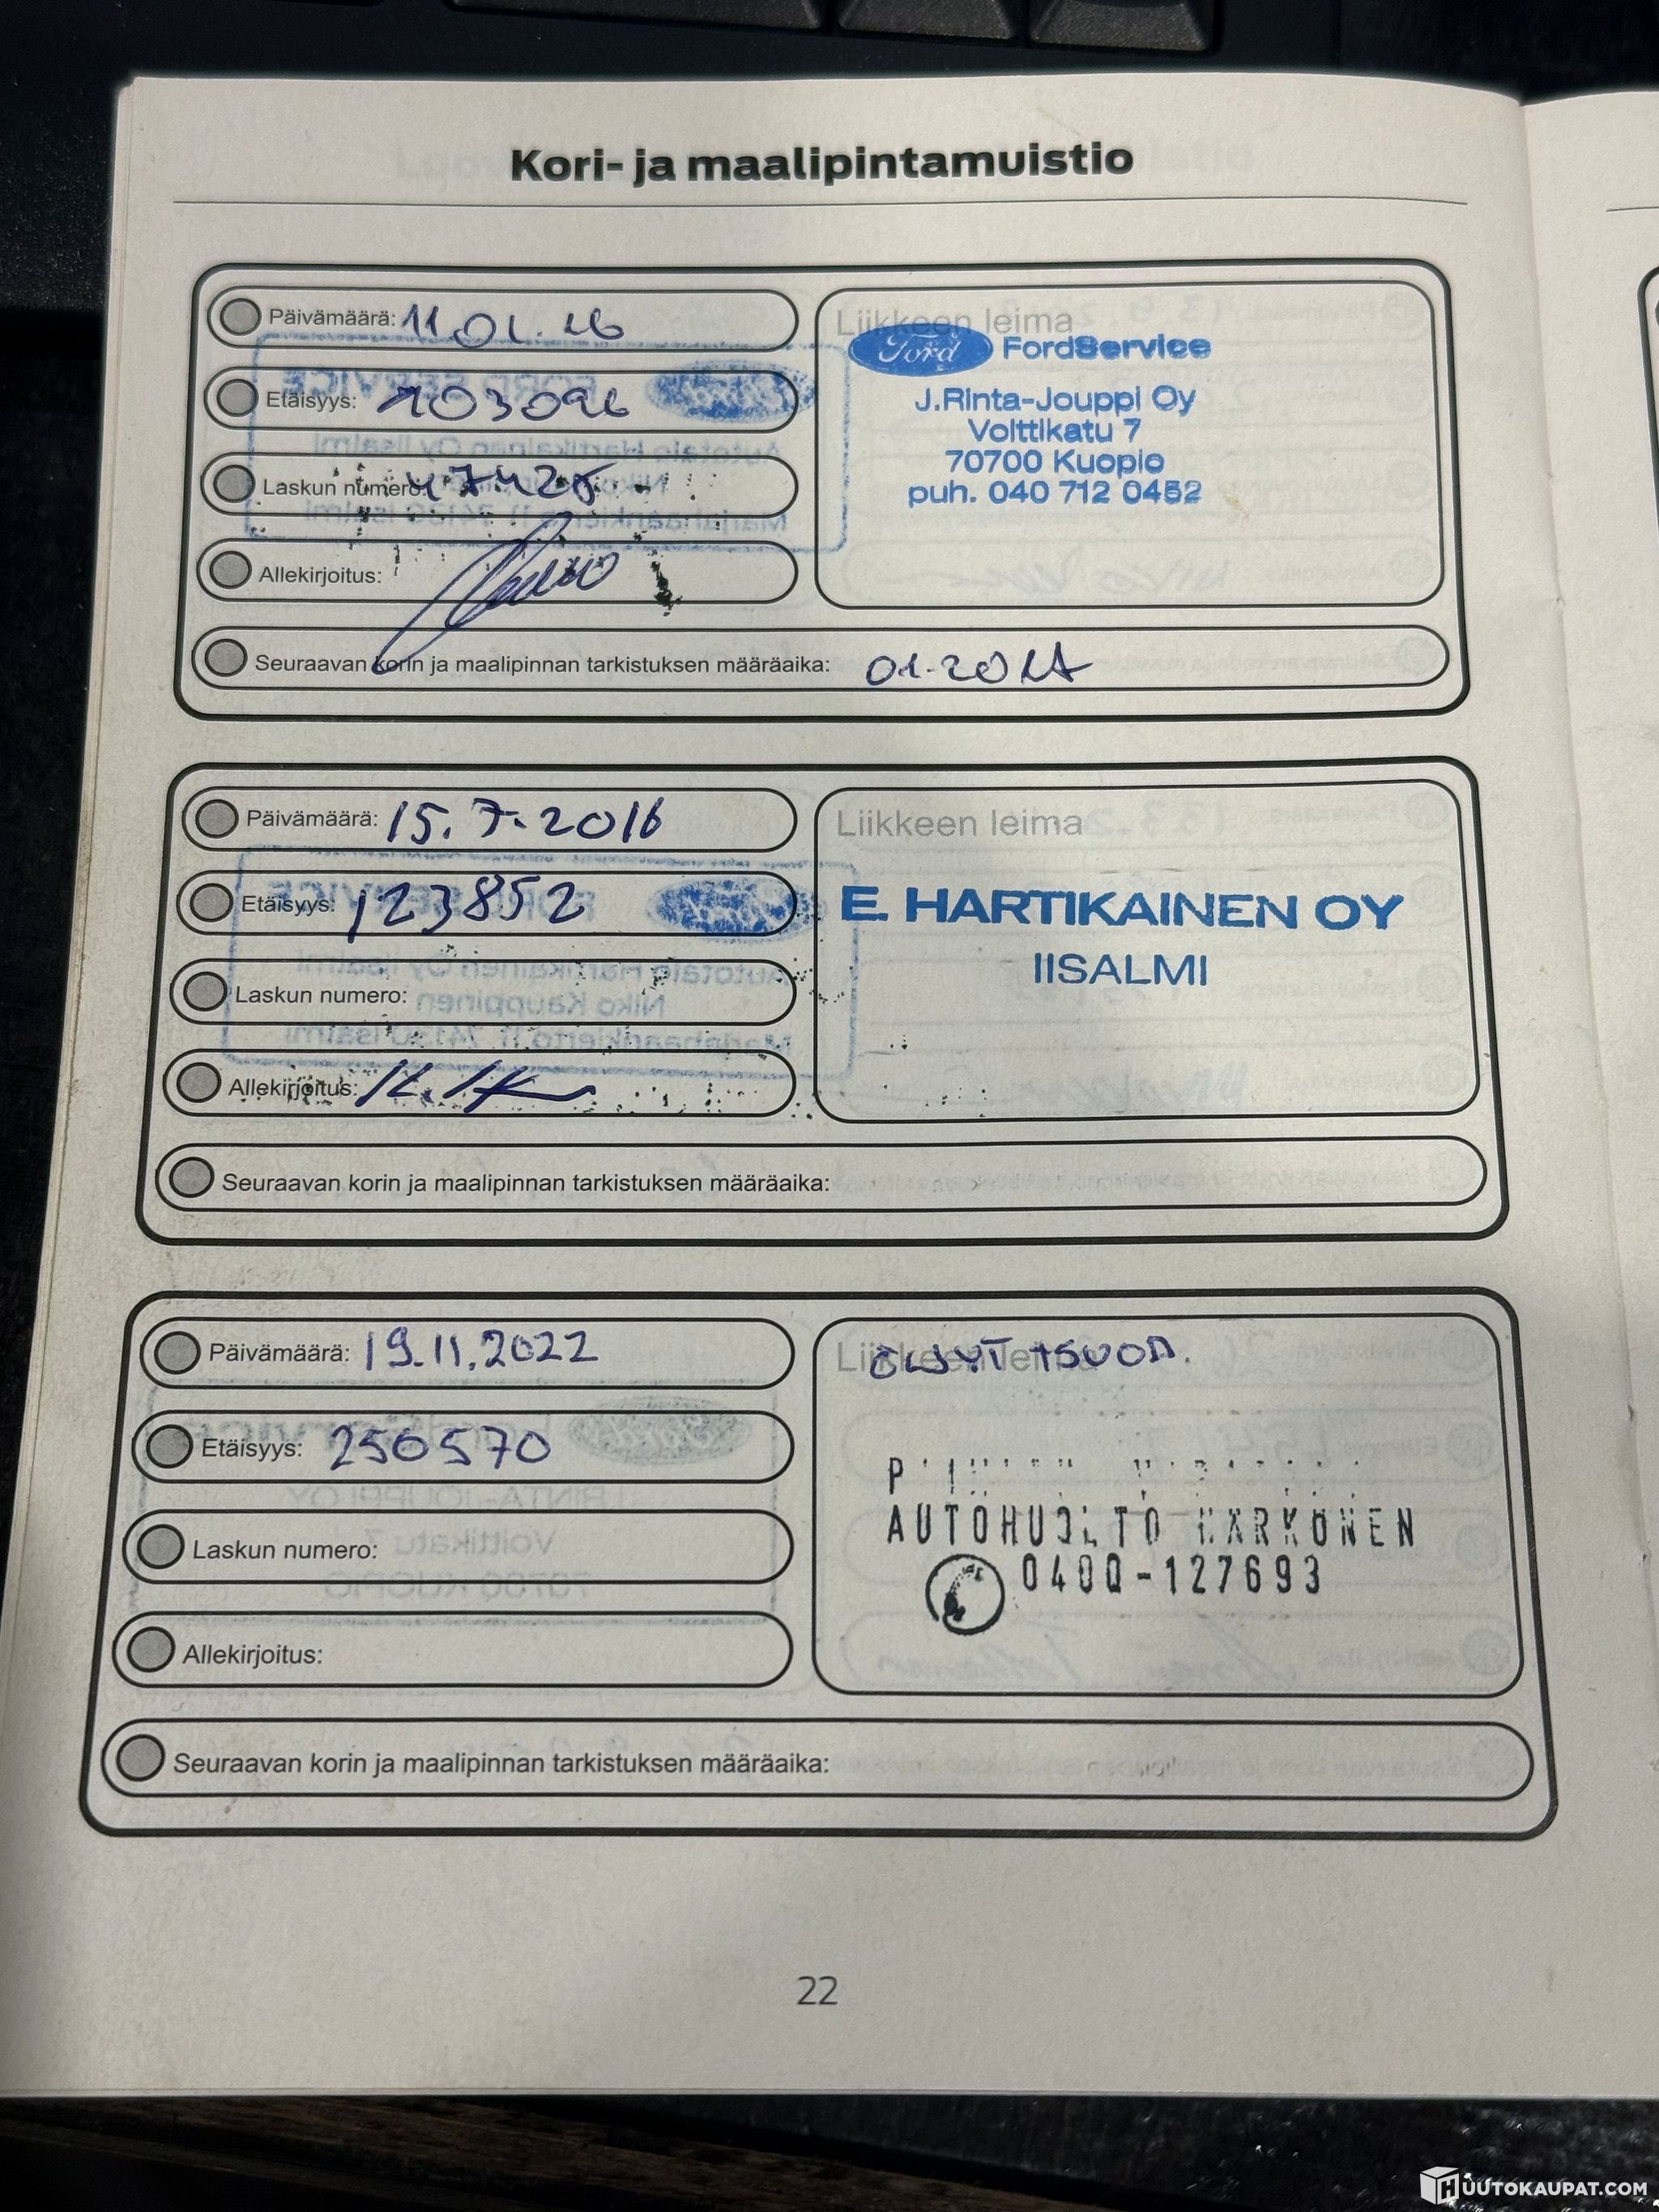 Kori- ja maalipintamuistio
Päivämäärä: 11.01.16
Liikkeen leima
Ford FordService
Etäisyys: 103096
J.Rinta-Jouppi Oy
Volttikatu 7
70700 Kuopio
puh. 040 712 0452
Laskun numero:
Allekirjoitus:
Seuraavan korin ja maalipinnan tarkistuksen määräaika: 01.2017
Päivämäärä: 15.7.2016
Liikkeen leima
Etäisyys: 123852
E. HARTIKAINEN OY
IISALMI
Laskun numero:
Allekirjoitus:
Seuraavan korin ja maalipinnan tarkistuksen määräaika:
Päivämäärä: 19.11.2022
Liikkeen leima
ÖLJYT +SUOD.
Etäisyys: 250570
AUTOHUOLTO KARKONEN
0400-127693
Laskun numero:
Allekirjoitus:
Seuraavan korin ja maalipinnan tarkistuksen määräaika:
22
HUUTOKAUPAT.COM